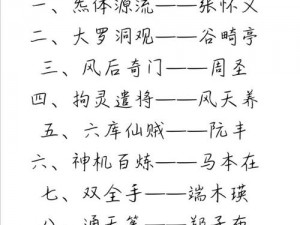 一、炁体源流——张怀义
二、大罗洞观——谷畸亭
三、风后奇门——周圣
四、拘灵遣将——风天养
五、六库仙贼——阮丰
六、神机百炼——马本在
七、双全手——端木瑛
八、通天箓——郑子布